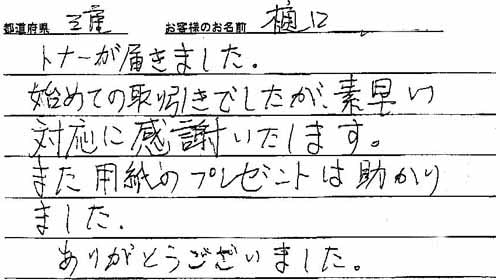 都道府県 三重 お客様のお名前 樋口
トナーが届きました。
始めての取引きでしたが、素早い
対応に感謝いたします。
また用紙のプレゼントは助かり
ました.
ありがとうございました。